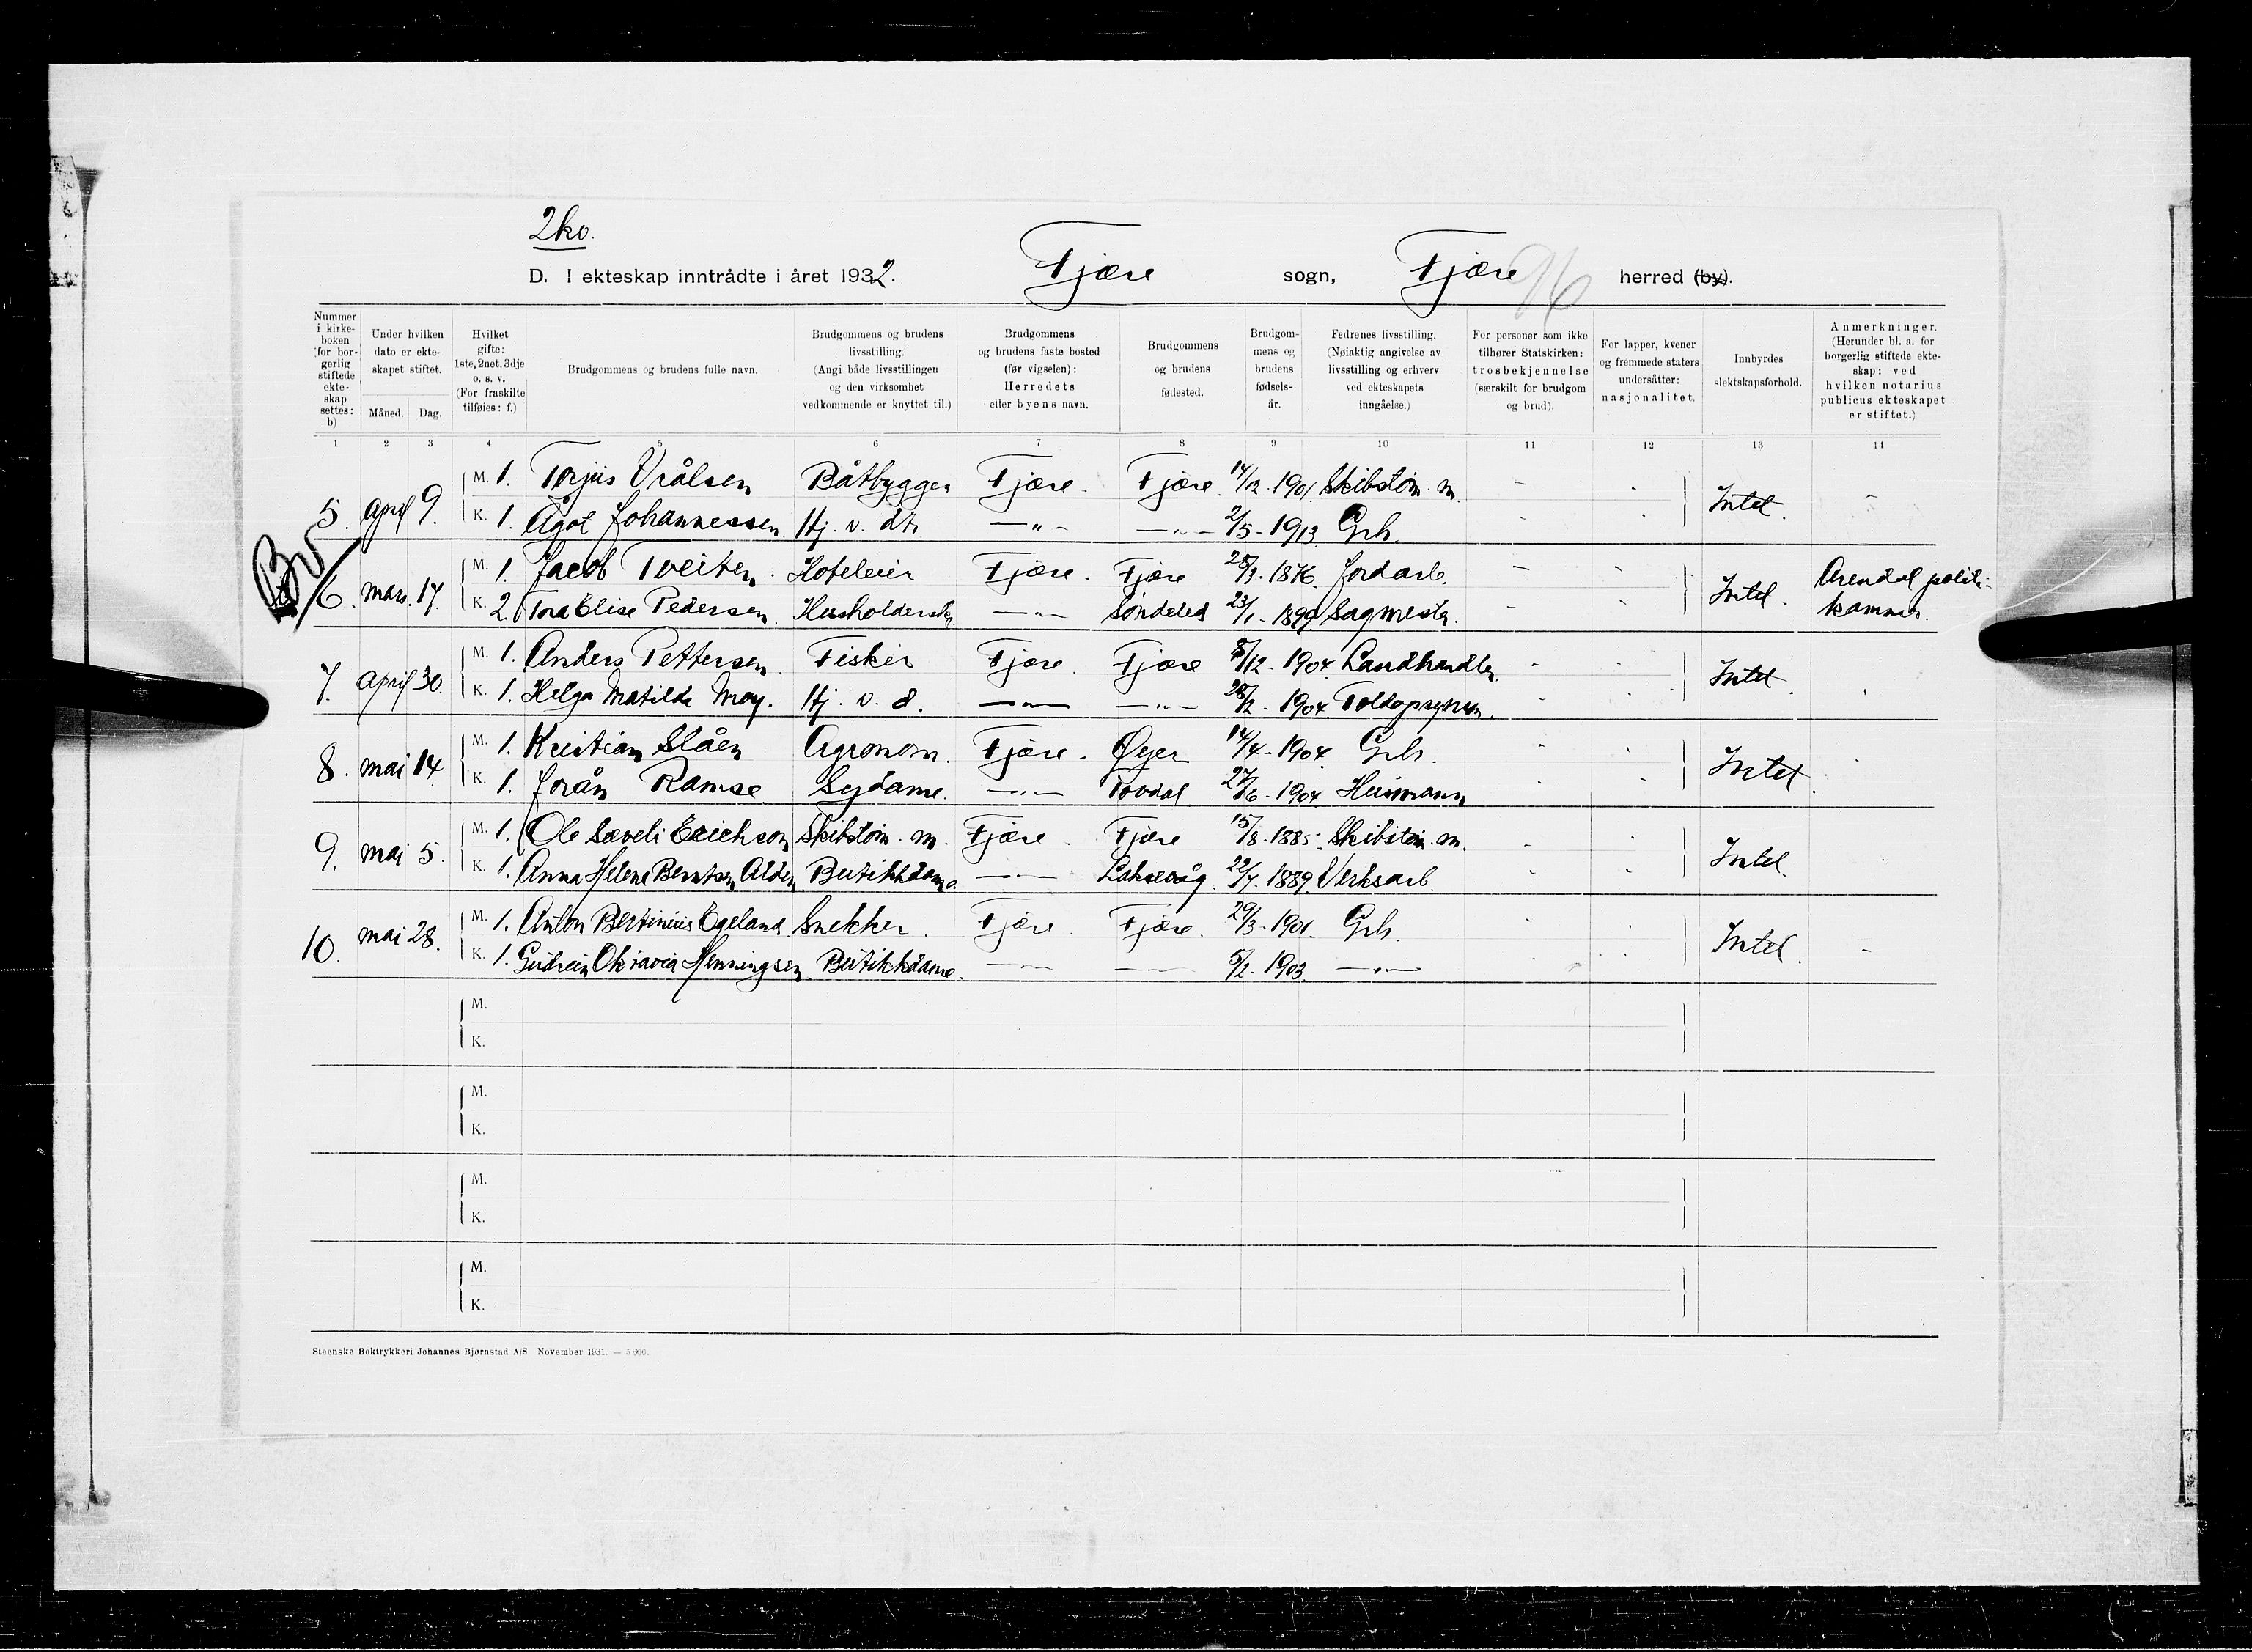 2 kv.
D. I ekteskap inntrådte i året 1932. Fjære sogn, Fjære herred (by).
96
Nummer i kirkeboken (for borgerlig stiftede ekteskap settes: b)
Under hvilken dato er ekteskapet stiftet.
Måned. Dag.
Hvilket gifte: 1ste, 2net, 3dje o. s. v. (For fraskilte tilføies: f.)
Brudgommens og brudens fulle navn.
Brudgommens og brudens livsstilling. (Angi både livsstillingen og den virksomhet vedkommende er knyttet til.)
Brudgommens og brudens faste bosted (før vigselen): Herredets eller byens navn.
Brudgommens og brudens fødested.
Brudgommens og brudens fødselsår.
Fedrenes livsstilling. (Nøiaktig angivelse av livsstilling og erhverv ved ekteskapets inngåelse.)
For personer som ikke tilhører Statskirken: trosbekjennelse (særskilt for brudgom og brud).
For lapper, kvener og fremmede staters undersåtter: nasjonalitet.
Innbyrdes slektskapsforhold.
Anmerkninger. (Herunder bl. a. for borgerlig stiftede ekteskap: ved hvilken notarius publicus ekteskapet er stiftet.)
1 2 3 4 5 6 7 8 9 10 11 12 13 14
5. April 9. M. 1. Torjus Vrålsen Båtbygger Fjære. Fjære. 14/12. 1901. Skibstøm. m. - - Intet. -
K. 1. Ågot Johannessen. Hj. v. dt. —"— —"— 2/5 - 1913. Grb. - -
6. Mars. 17. M. 1. Jacob Tveiten. Hoteleier Fjære. Fjære 28/3. 1876. Jordarb. - - Intet. Arendal politi-
K. 2. Tora Elise Pedersen. Husholdersk. —"— Søndeled 23/1 - 1899 Sagmester. - - kammer.
7. April 30. M. 1. Anders Pettersen. Fisker Fjære. Fjære 8/12. 1904. Landhandler. - - Intet.
K. 1. Helga Matilde Moy. Hj. v. d. —"— —"— 28/2. - 1904 Toldopsynsm. - -
8. mai 14. M. 1. Kristian Slåen Agronom. Fjære. Øyer 14/4 - 1904. Grb. - - Intet.
K. 1. Jorån Ramse Sydame. —"— Tovdal 27/6 - 1904. Husmann - -
9. mai 5. M. 1. Ole Sæveli Erichson Skibstøm. m. Fjære. Fjære 15/8. 1885. Skibstøm. m. - - Intet.
K. 1. Anna Helene Berntsen Alden Butikkdame. —"— Laksevåg. 22/7. 1889. Verksarb. - -
10. mai 28. M. 1. Anton Bertinius Egeland. Snekker. Fjære. Fjære. 29/3 - 1901. Grb. - - Intet. -
K. 1. Gudrun Oktavia Henningsen. Butikkdame. —"— —"— 5/2. 1903. —"— - -
M.
K.
M.
K.
M.
K.
M.
K.
Steenske Boktrykkeri Johannes Bjørnstad A/S November 1931. — 5 600.